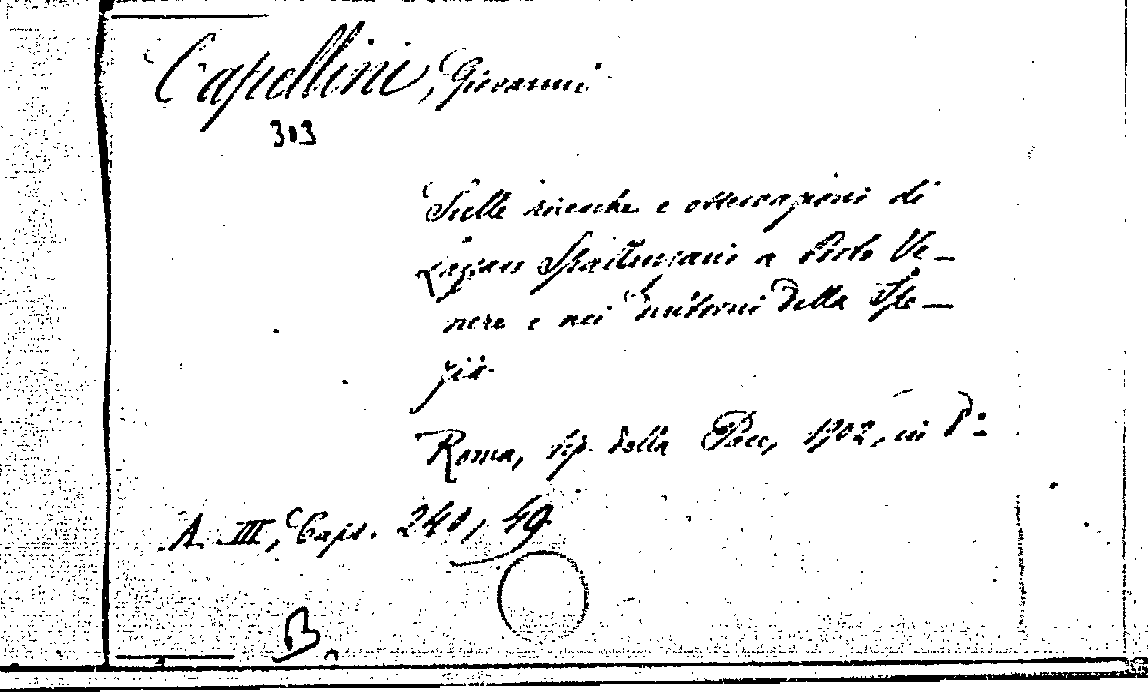 Capellini, Giovanni
303
Sulle ricerche e osservazioni di
Lazzaro Spallanzani a Porto Ve-
nere e nei dintorni della Spe-
zia
Roma, tip. della Pace, 1902, in 8°-
A. III, Caps. 240, 49
B.